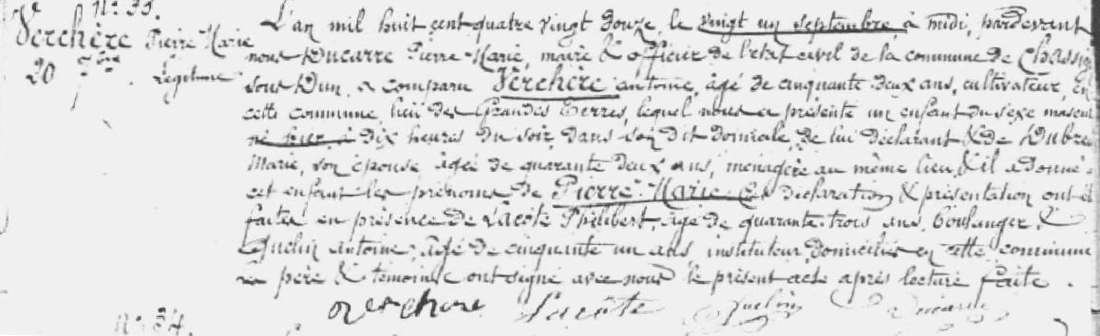 N° 33.
Verchère Pierre Marie
20 7bre Légitime
L'an mil huit cent quatre vingt douze, le vingt un septembre, à midi, pardevant
nous Ducarre Pierre-Marie, maire & officier de l'état civil de la commune de Chassig
sous Dun, a comparu Verchère Antoine, âgé de cinquante deux ans, cultivateur, en
cette commune, lieu des Grandes Terres, lequel nous a présenté un enfant du sexe mascul
né hier, à dix heures du soir, dans son dit domicile, de lui déclarant & de Dubre
Marie, son épouse âgée de quarante deux ans, ménagère au même lieu, & il a donné
cet enfant les prénoms de Pierre-Marie. Ces déclaration & présentation ont ét
faites en présence de Lacôte Philibert, âgé de quarante-trois ans, boulanger, &
Guelin Antoine, âgé de cinquante un ans, instituteur, domiciliés en cette commune
père & témoins ont signé avec nous le présent acte après lecture faite.
Verchere Lacôte Guelin Ducarre
N° 34.